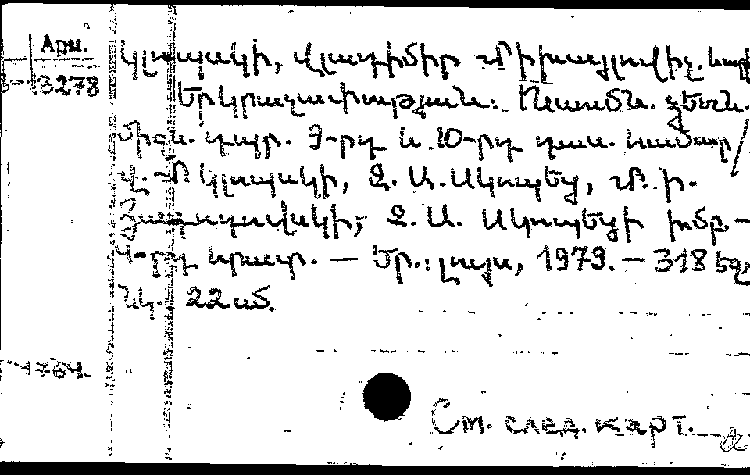 Арм.
Կլոպսկի, Վլադիմիր Միխայլովիչ և ուր.
3278
Երկրաչափություն: Ուսումն. ձեռն.
միջն. դպր. 9-րդ և 10-րդ դաս. համար/
Վ. Մ. Կլոպսկի, Զ. Ա. Սկոպեց, Մ. Ի.
Յագոդովսկի; Զ. Ա. Սկոպեցի խմբ.—
4-րդ հրատ. — Եր.: Լույս, 1979. — 318 էջ
նկ. 22 սմ.
Ст. след. карт.